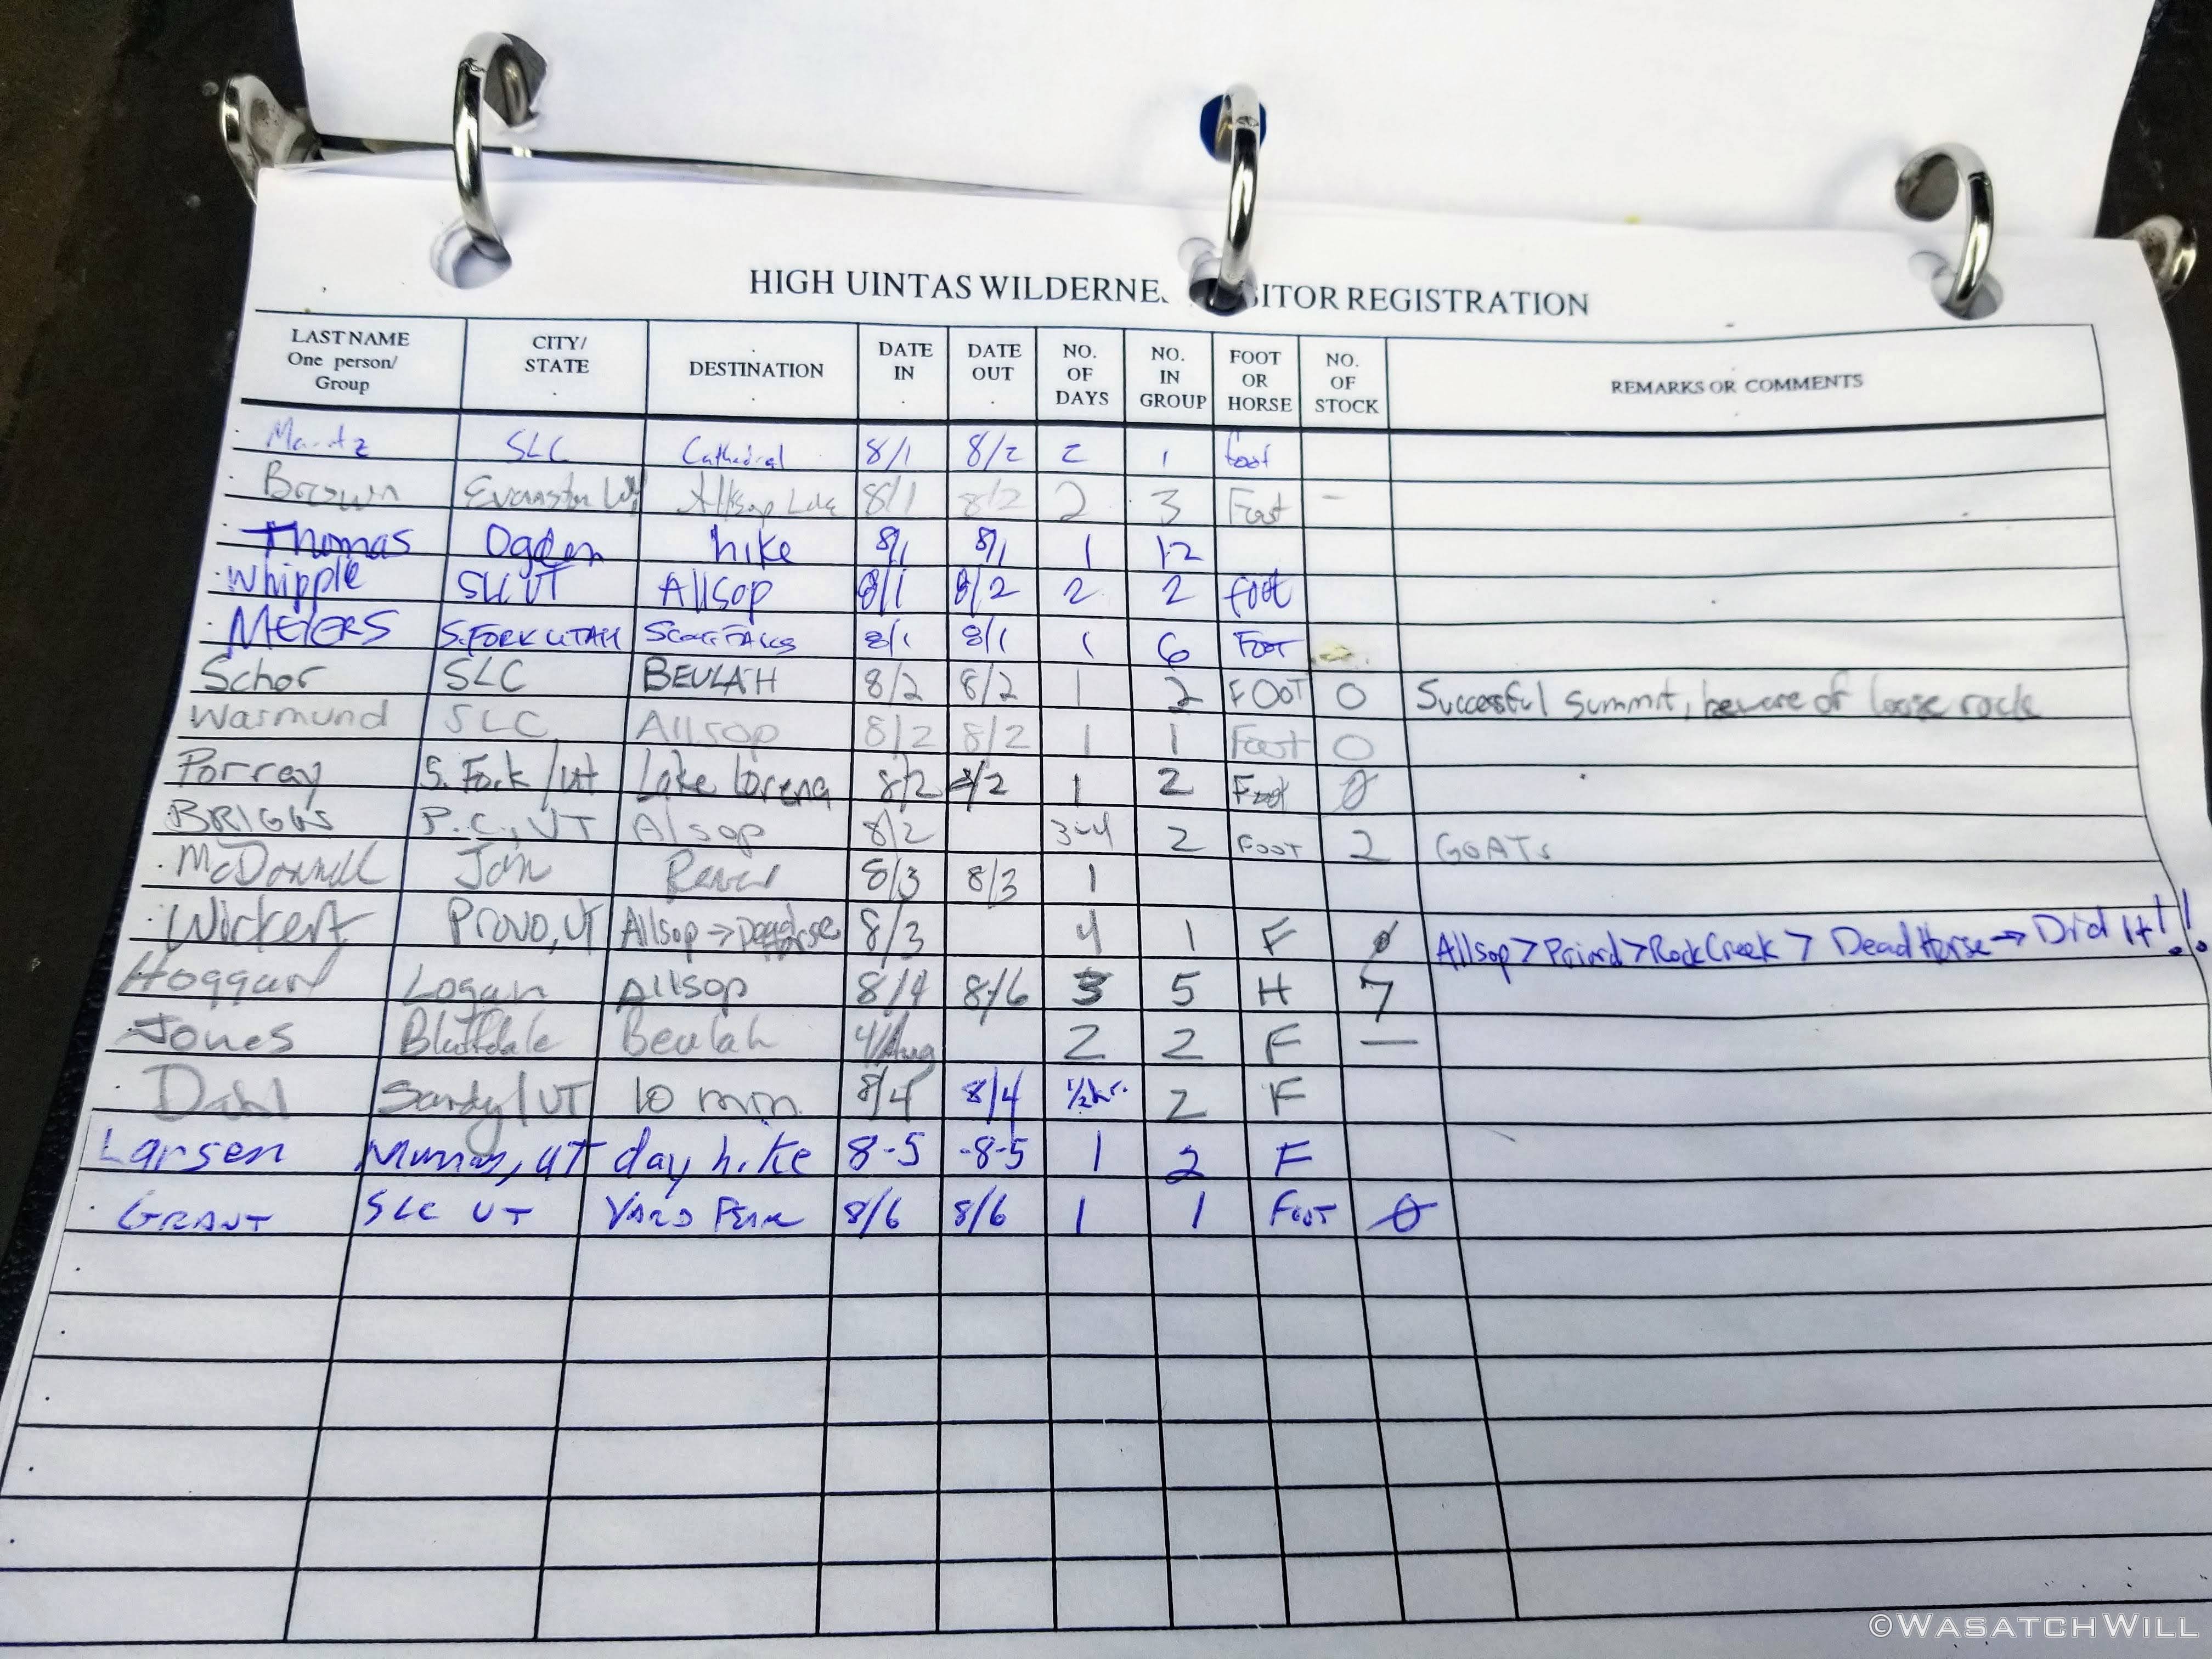 HIGH UINTAS WILDERNE ITOR REGISTRATION
LAST NAME One person/ Group CITY/ STATE DESTINATION DATE IN DATE OUT NO. OF DAYS NO. IN GROUP FOOT OR HORSE NO. OF STOCK REMARKS OR COMMENTS
SLC Cathedral 8/1 8/2 2 1 foot
Brown Evanston Wy Allsop Lake 8/1 8/2 2 3 Foot -
Thomas Ogden hike 8/1 8/1 1 12
Whipple SLC UT Allsop 8/1 8/2 2 2 foot
MEYERS S. FORK UTAH 8/1 8/1 1 6 FOOT
Schor SLC BEULAH 8/2 8/2 1 2 FOOT 0 Successful summit, beware of loose rock
Wasmund SLC Allsop 8/2 8/2 1 1 Foot 0
Porray S. Fork/Ut Lake Lorena 8/2 8/2 1 2 Foot 0
BRIGGS P.C., UT Alsop 8/2 3-4 2 FOOT 2 GOATS
McDonnell 8/3 8/3 1
Wickert Provo, UT Allsop → Dead Horse 8/3 4 1 F ø Allsop > Priord > Rock Creek > Dead Horse → Did It!!
Hoggard Logan Allsop 8/4 8/6 3 5 H 7
Jones Bluffdale Beulah 4/Aug 2 2 F —
Dahl Sandy/UT 10 min. 8/4 8/4 1/2 hr. 2 F
Larsen Murray, UT day hike 8-5 -8-5 1 2 F
GRANT SLC UT YARD PEAK 8/6 8/6 1 1 FOOT 0
©WASATCHWILL